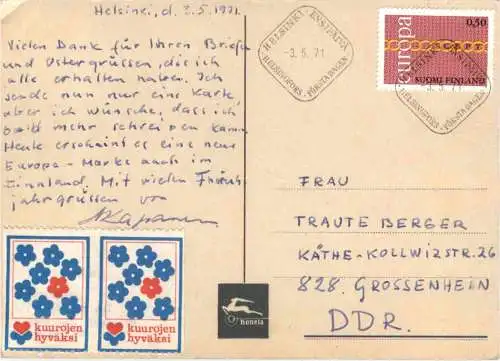 Helsinki, d. 3.5.1971.
Vielen Dank für Ihren Briefe
und Ostergrüssen, die ich
alle erhalten haben. Ich
sende nun nur eine Karte,
aber ich wünsche, dass ich
bald mehr schreiben kann.
Heute erscheint es eine neue
Europa-Marke auch im
Finnland. Mit vielen Früh-
jahrgrüssen von
HELSINKI - ENSIPÄIVÄ
-3.5.71
HELSINGFORS - FÖRSTA DAGEN
europa
0,50
SUOMI FINLAND
FRAU
TRAUTE BERGER
KÄTHE-KOLLWIZSTR.26
828. GROSSENHEIN
DDR.
kuurojen
hyväksi
kuurojen
hyväksi